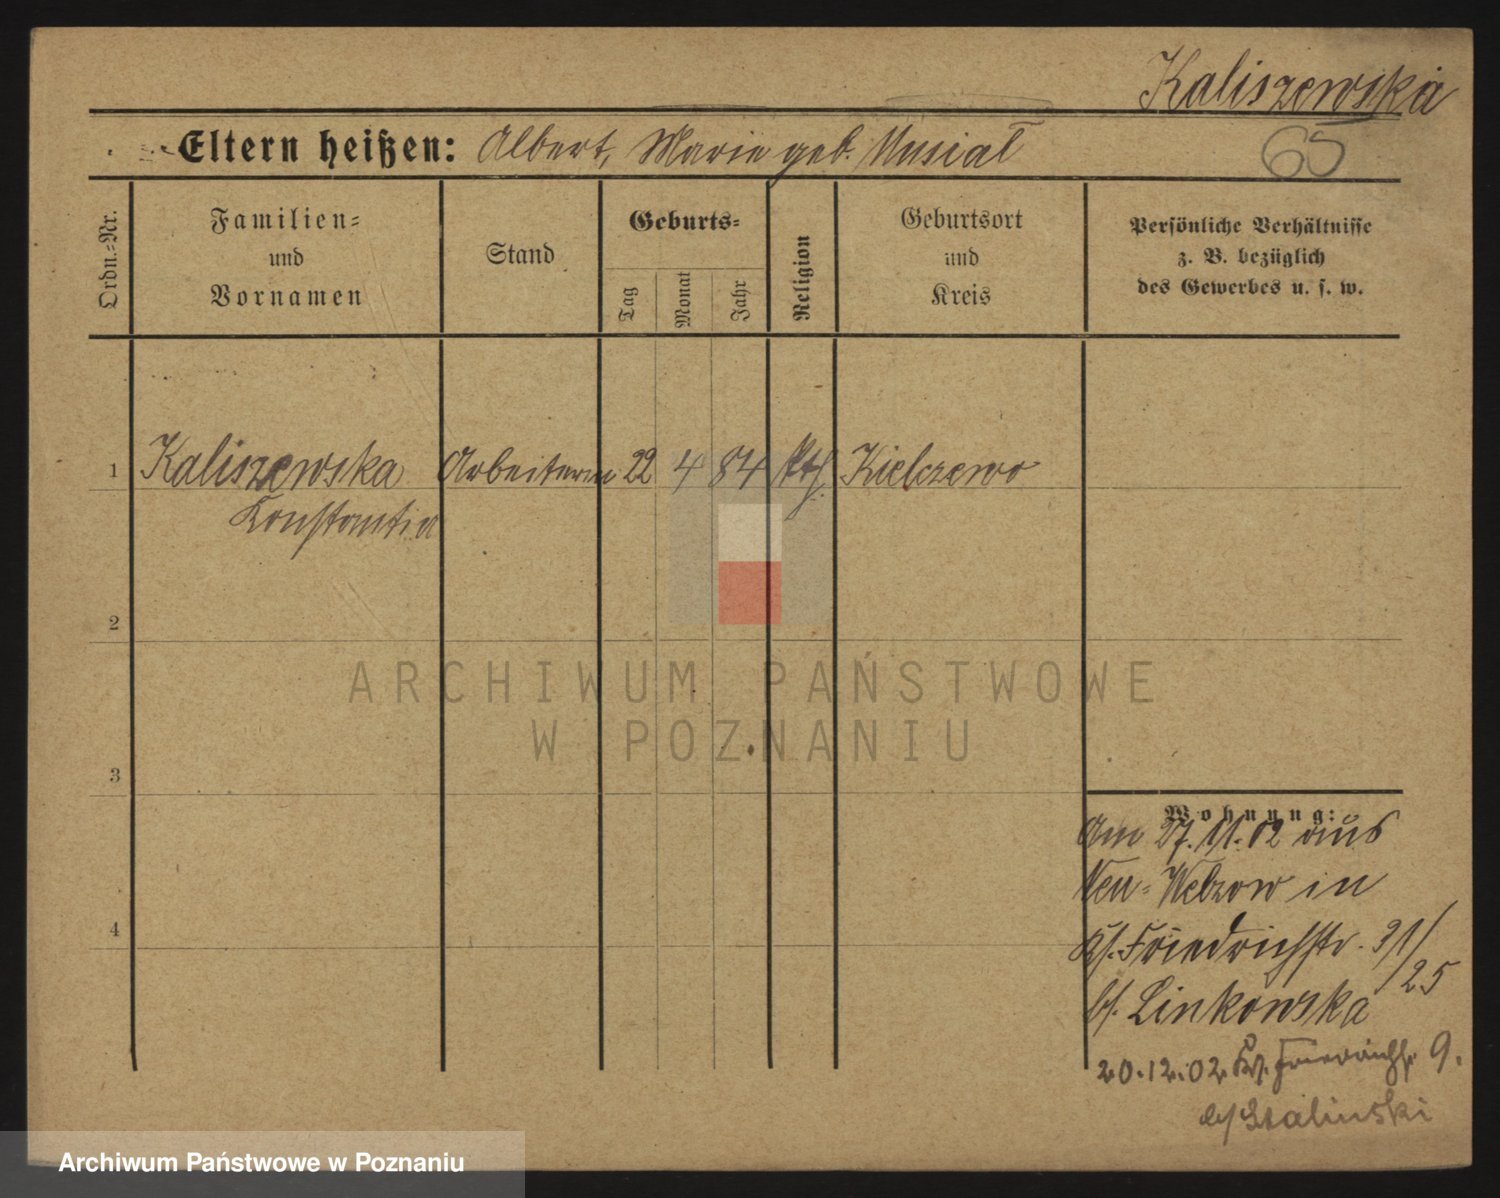 Kaliszewska
65
Eltern heißen: Albert, Marie geb. Musial
Ordn.-Nr.
Familien-
und
Vornamen
Stand
Geburts-
Tag
Monat
Jahr
Religion
Geburtsort
und
Kreis
Persönliche Verhältnisse
z. B. bezüglich
des Gewerbes u. s. w.
1 Kaliszewska Arbeiterin 22 4 84 kth. Kielczewo
Konstantia
2
3
4
ARCHIWUM PAŃSTWOWE
W POZNANIU
Wohnung:
Am 27.11.02 aus
Neu-Welzow in
Friedrichstr. 31/
25
b/. Linkowska
20.12.02. Friedrichstr. 9.
b/ Stalinski
Archiwum Państwowe w Poznaniu